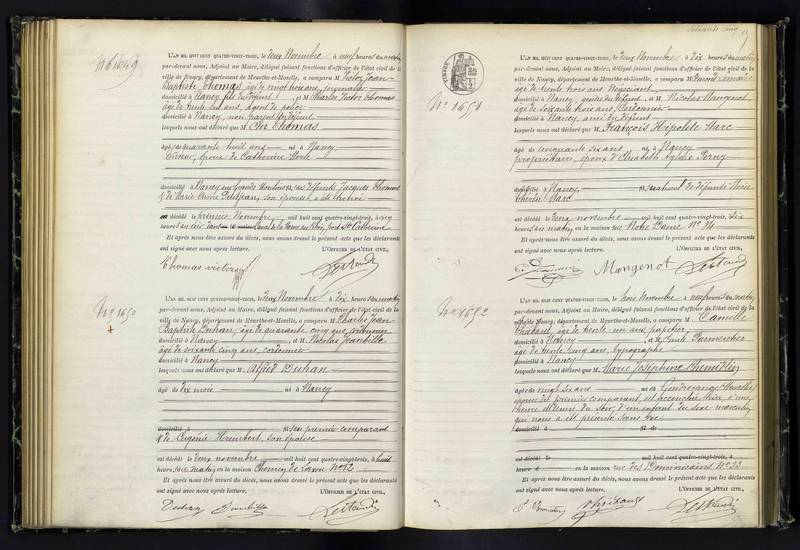 Nº 1649
L'AN MIL HUIT CENT QUATRE-VINGT-TROIS, le deux Novembre à neuf heures du matin
par-devant nous, Adjoint au Maire, délégué faisant fonctions d'officier de l'état civil de la
ville de Nancy, département de Meurthe-et-Moselle, a comparu M. Victor Jean
Baptiste Thomas, âgé de vingt trois ans, journalier
domicilié à Nancy, fils du défunt, et M. Charles Victor Thomas
âgé de trente six ans, agent de police
domicilié à Nancy, non parent du défunt
lesquels nous ont déclaré que M. Thomas
âgé de quarante huit ans né à Nancy
époux de Catherine
domicilié à Nancy, fils des défunts Jacques Thomas
& de Marie Anne Petitjean, son épouse, a été trouvé
décédé le premier Novembre mil huit cent quatre-vingt-trois, à cinq
heures du soir dans le canal de la Marne au Rhin, port Ste Catherine
Et après nous être assuré du décès, nous avons dressé le présent acte que les déclarants
ont signé avec nous après lecture. L'OFFICIER DE L'ÉTAT CIVIL,
Thomas victor
Nº 1650
L'AN MIL HUIT CENT QUATRE-VINGT-TROIS, le deux Novembre à dix heures du matin
par-devant nous, Adjoint au Maire, délégué faisant fonctions d'officier de l'état civil de la
ville de Nancy, département de Meurthe-et-Moselle, a comparu M. Charles Jean
Baptiste Duhan, âgé de quarante cinq ans, cordonnier
domicilié à Nancy, et M. Nicolas Jeanbille
âgé de soixante cinq ans, cordonnier
domicilié à Nancy
lesquels nous ont déclaré que M. Alfred Duhan
âgé de dix mois né à Nancy
domicilié à fils du premier comparant
& de Eugénie Humbert, son épouse
est décédé le deux novembre mil huit cent quatre-vingt-trois, à huit
heures du matin en la maison Chemin de Nº 12
Et après nous être assuré du décès, nous avons dressé le présent acte que les déclarants
ont signé avec nous après lecture. L'OFFICIER DE L'ÉTAT CIVIL,
soixante cinq
TIMBRE
Nº 1651
L'AN MIL HUIT CENT QUATRE-VINGT-TROIS, le deux Novembre à dix heures du matin
par-devant nous, Adjoint au Maire, délégué faisant fonctions d'officier de l'état civil de la
ville de Nancy, département de Meurthe-et-Moselle, a comparu M.
âgé de trente trois ans, Négociant
domicilié à Nancy, du défunt, et M. Nicolas Mangenot
âgé de soixante trois ans, Cordonnier
domicilié à Nancy, ami du défunt
lesquels nous ont déclaré que M. François Hipolite Marc
âgé de cinquante six ans né à Nancy
propriétaire, époux d'Elisabeth Perny
domicilié à Nancy, fils naturel de défunte Marie
Marc
est décédé le deux novembre mil huit cent quatre-vingt-trois, à six
heures du matin en la maison rue Notre Dame Nº 34
Et après nous être assuré du décès, nous avons dressé le présent acte que les déclarants
ont signé avec nous après lecture. L'OFFICIER DE L'ÉTAT CIVIL,
Mangenot
Nº 1652
L'AN MIL HUIT CENT QUATRE-VINGT-TROIS, le deux Novembre à heures du matin
par-devant nous, Adjoint au Maire, délégué faisant fonctions d'officier de l'état civil de la
ville de Nancy, département de Meurthe-et-Moselle, a comparu M. Camille
âgé de trente un ans, papetier
domicilié à Nancy, et M. Parmentier
âgé de trente cinq ans, typographe
domicilié à Nancy
lesquels nous ont déclaré que M. Marie Joséphine
âgée de vingt six ans née à
épouse du premier comparant, est accouchée hier, à une
heure du soir, d'un enfant du sexe masculin
qui nous a été présenté sans vie
domicilié à fil de
est décédé le mil huit cent quatre-vingt-trois, à
heures d en la maison rue des Dominicains Nº 22
Et après nous être assuré du décès, nous avons dressé le présent acte que les déclarants
ont signé avec nous après lecture. L'OFFICIER DE L'ÉTAT CIVIL,